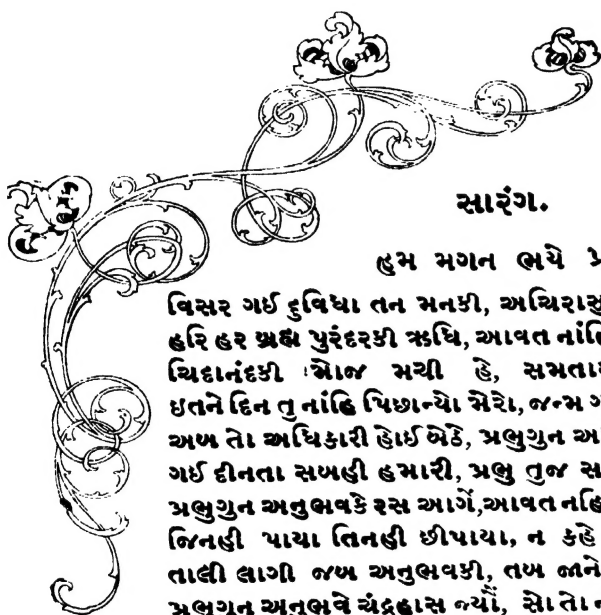 સારંગ.
હમ મગન ભયે પ્ર
વિસર ગઈ દુવિધા તન મનકી, અચિરાસુ
હરિ હર બ્રહ્મ પુરંદરકી ઋધિ, આવત નાંહિ
ચિદાનંદકી મોજ મચી હે, સમતાર
ઇતને દિન તુ નાંહિ પિછાન્યો મેરો, જન્મ ગ
અબ તો અધિકારી હોઈ બેઠે, પ્રભુગુન અ
ગઈ દીનતા સબહી હમારી, પ્રભુ તુજ સ
પ્રભુગુન અનુભવકે રસ આગેં,આવત નહિ
જિનહી પાયા તિનહી છીપાયા, ન કહે
તાલી લાગી જબ અનુભવકી, તબ જાને
પ્રભુગુન અનુભવ ચંદ્રહાસ જ્યોં, સો તો ન